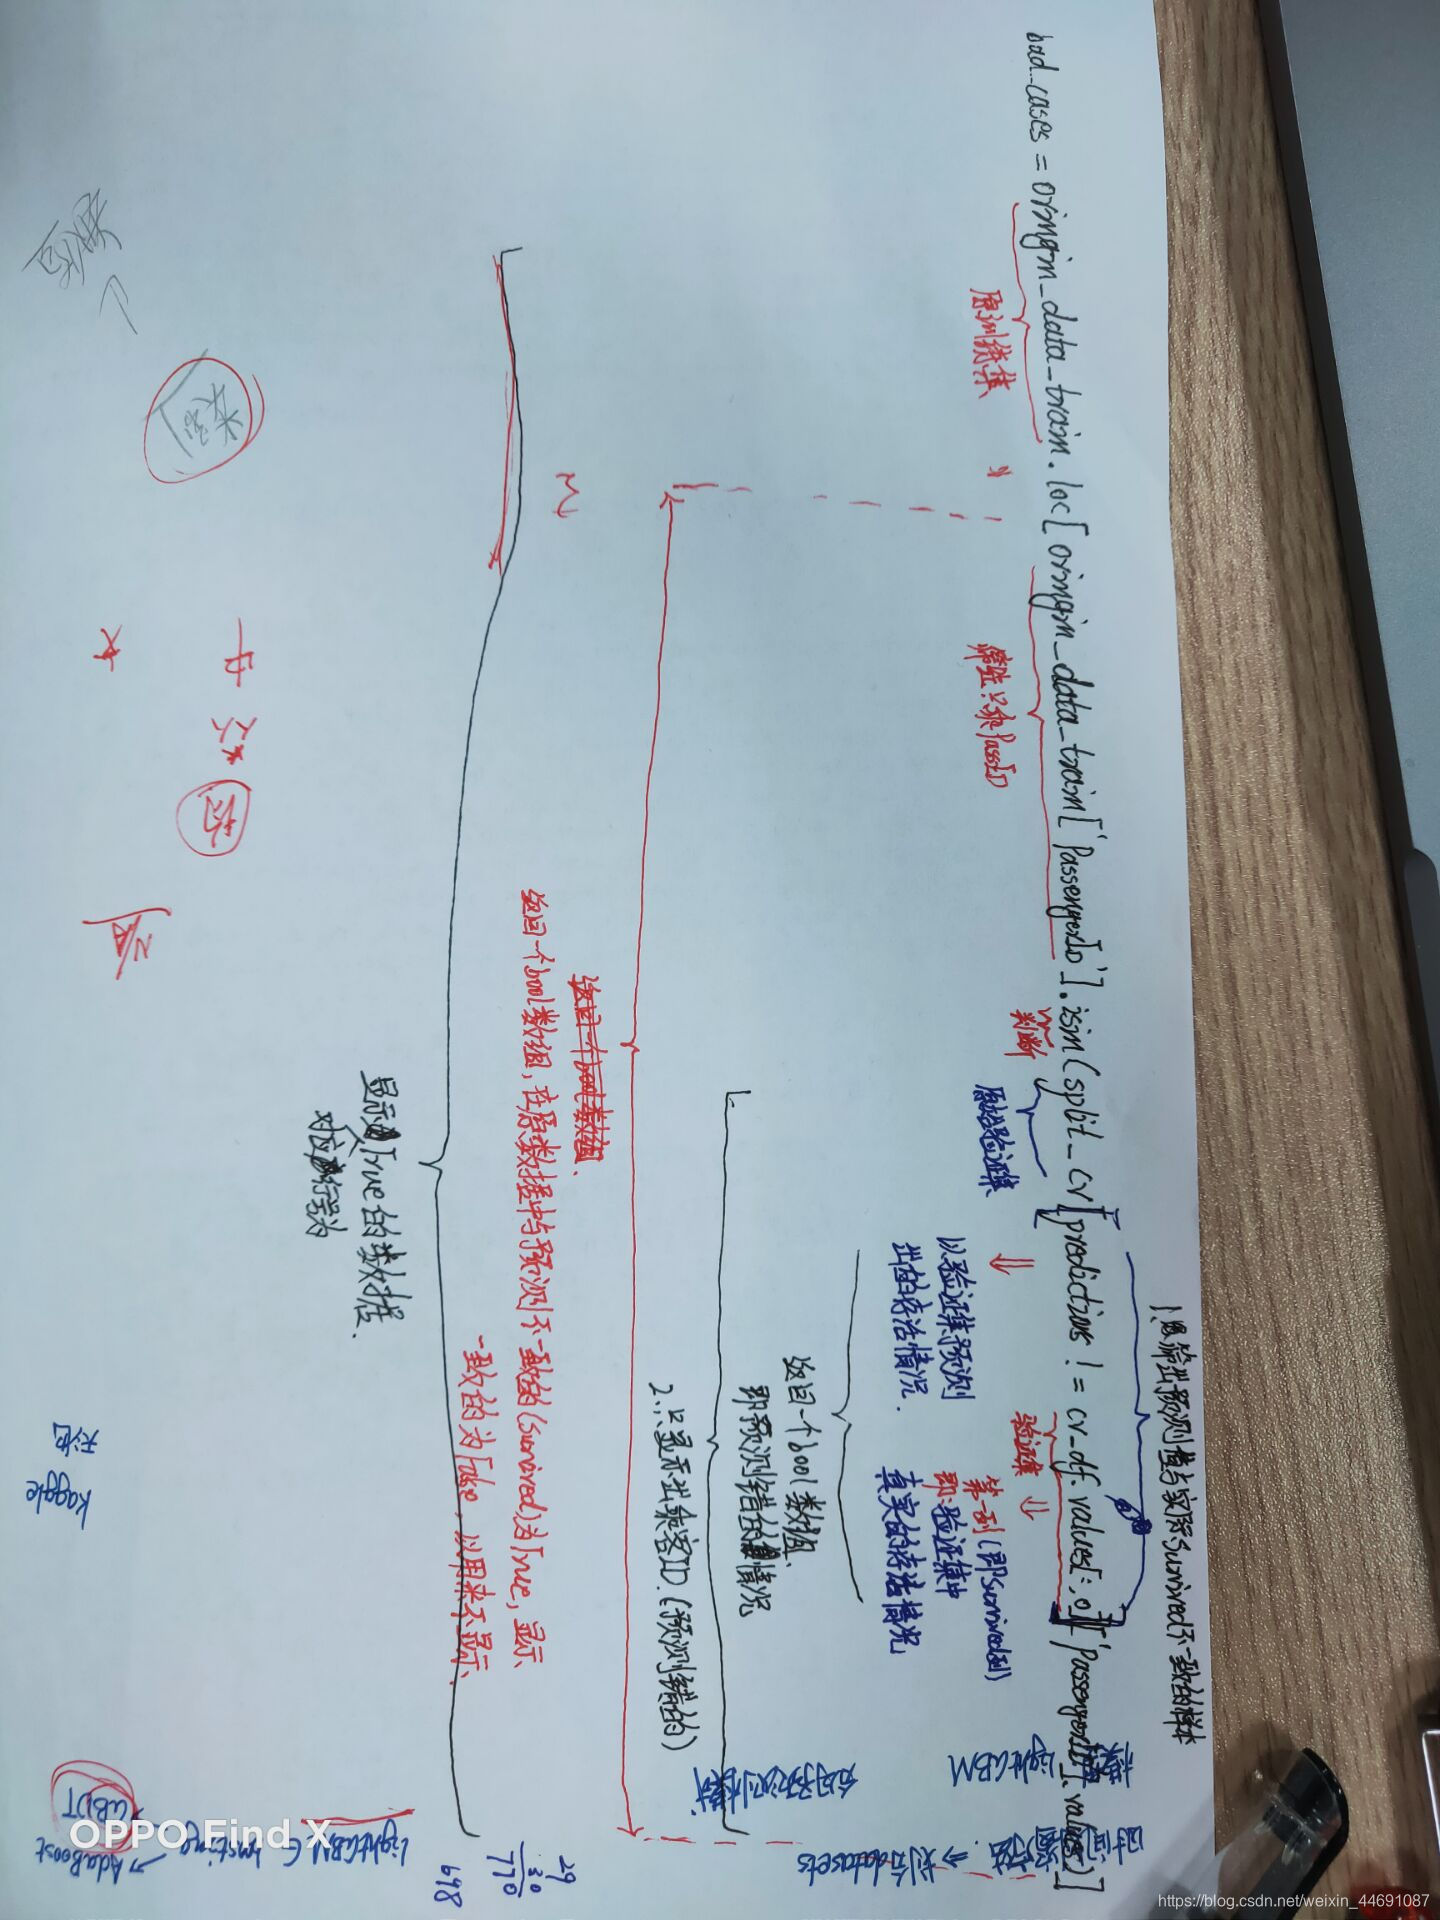 bad_cases = oringin_data_train.loc[oringin_data_train['PassengerId'].isin(split_cv[predictions != cv_df.values[:,0]]['PassengerId'].values)]
原训练集
筛选:只乘PassID
判断
原始验证集
1、输出预测值与实际Survived不一致的样本
以验证集预测
出的存活情况.
验证集
第一列(即Survived列)
即:验证集中
真实的存活情况
返回一个bool数组
即预测错的情况
2.∴只显示出乘客ID.(预测错的)
返回一个bool数组、
返回一个bool数组,在原数据中与预测不一致的(Survived)为True,显示
一致的为False,以用来不显示、
显示True的数据、
对应行为
模型 LightGBM
时间窗方法 ⇒ 划分datasets
LightGBM ∈ boosting → AdaBoost
GBDT
29
30
770
698
kaggle
天池
OPPO Find X
https://blog.csdn.net/weixin_44691087